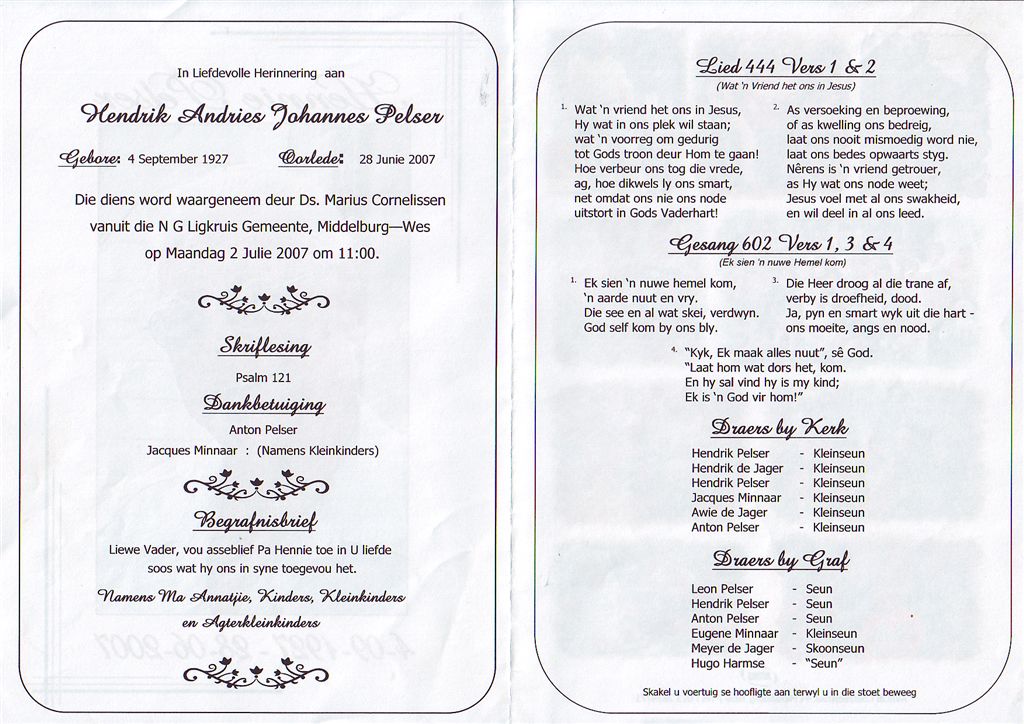 In Liefdevolle Herinnering aan
Hendrik Andries Johannes Pelser
Gebore: 4 September 1927 Oorlede: 28 Junie 2007
Die diens word waargeneem deur Ds. Marius Cornelissen
vanuit die N G Ligkruis Gemeente, Middelburg—Wes
op Maandag 2 Julie 2007 om 11:00.
Skriflesing
Psalm 121
Dankbetuiging
Anton Pelser
Jacques Minnaar : (Namens Kleinkinders)
Begrafnisbrief
Liewe Vader, vou asseblief Pa Hennie toe in U liefde
soos wat hy ons in syne toegevou het.
Namens Ma Annatjie, Kinders, Kleinkinders
en Agterkleinkinders
Lied 444 Vers 1 & 2
(Wat 'n Vriend het ons in Jesus)
1. Wat 'n vriend het ons in Jesus,
Hy wat in ons plek wil staan;
wat 'n voorreg om gedurig
tot Gods troon deur Hom te gaan!
Hoe verbeur ons tog die vrede,
ag, hoe dikwels ly ons smart,
net omdat ons nie ons node
uitstort in Gods Vaderhart!
2. As versoeking en beproewing,
of as kwelling ons bedreig,
laat ons nooit mismoedig word nie,
laat ons bedes opwaarts styg.
Nêrens is 'n vriend getrouer,
as Hy wat ons node weet;
Jesus voel met al ons swakheid,
en wil deel in al ons leed.
Gesang 602 Vers 1, 3 & 4
(Ek sien 'n nuwe Hemel kom)
1. Ek sien 'n nuwe hemel kom,
'n aarde nuut en vry.
Die see en al wat skei, verdwyn.
God self kom by ons bly.
3. Die Heer droog al die trane af,
verby is droefheid, dood.
Ja, pyn en smart wyk uit die hart -
ons moeite, angs en nood.
4. "Kyk, Ek maak alles nuut", sê God.
"Laat hom wat dors het, kom.
En hy sal vind hy is my kind;
Ek is 'n God vir hom!"
Draers by Kerk
Hendrik Pelser - Kleinseun
Hendrik de Jager - Kleinseun
Hendrik Pelser - Kleinseun
Jacques Minnaar - Kleinseun
Awie de Jager - Kleinseun
Anton Pelser - Kleinseun
Draers by Graf
Leon Pelser - Seun
Hendrik Pelser - Seun
Anton Pelser - Seun
Eugene Minnaar - Kleinseun
Meyer de Jager - Skoonseun
Hugo Harmse - "Seun"
Skakel u voertuig se hoofligte aan terwyl u in die stoet beweeg